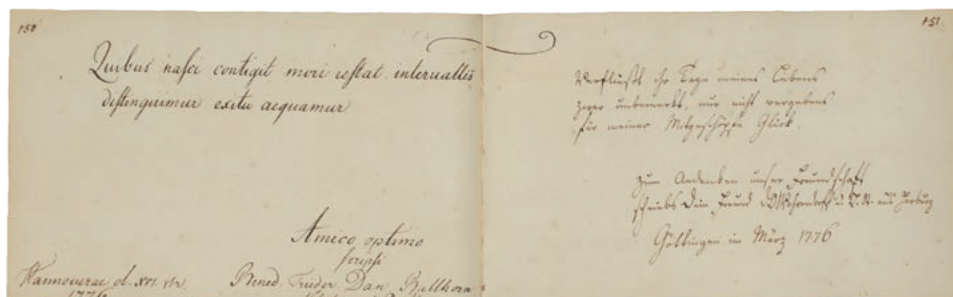 150
Quibus nasci contigit mori restat intervallis
distinguimur exitu aequamur
Amico optimo
scripsi
Hannoverae d. XVI.
1776
Bened. Frieder. Dan. Ballhorn
151
Verfließt ihr Tage meines Lebens
zwar unbemerkt, nur nicht vergebens
für meiner Mitgeschöpfe Glück.
Zum Andenken unser Freundschaft
schriebs Dein Freund aus Harburg
Göttingen im März 1776